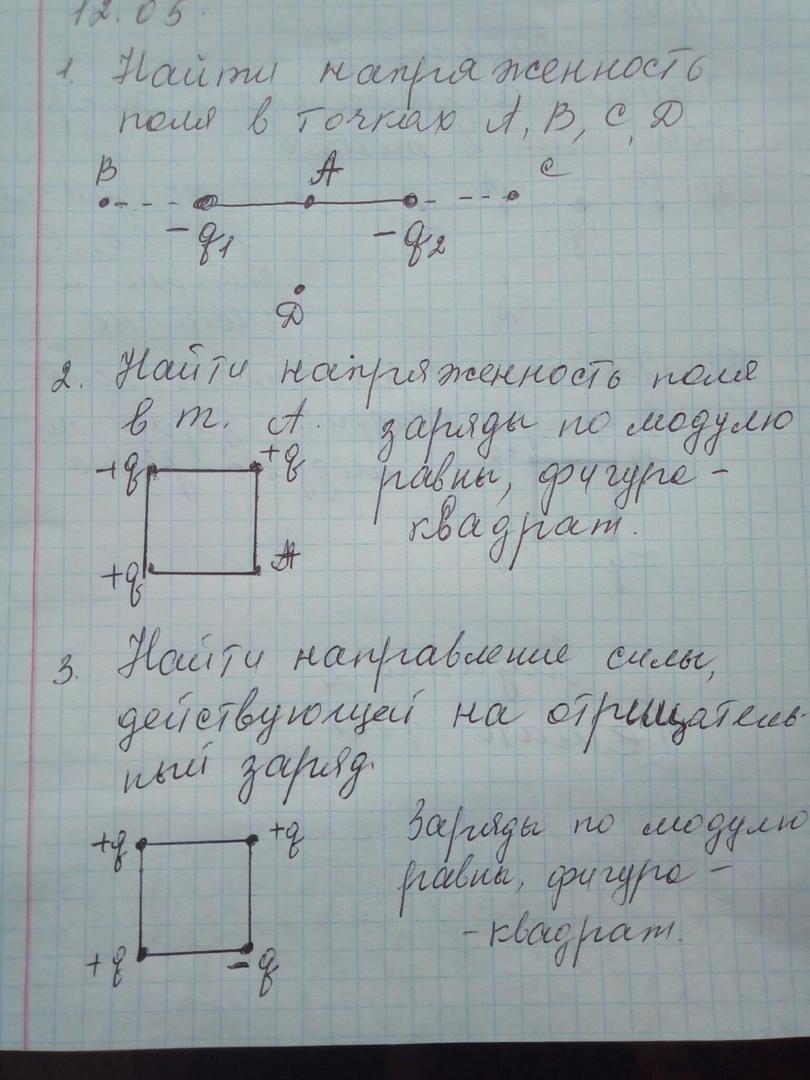 12.05.
1. Найти напряженность
поля в точках A, B, C, D
B A C
-q1 -q2
D
2. Найти напряженность поля
в т. A. заряды по модулю
+q +q равны, фигура -
квадрат.
+q A
3. Найти направление силы,
действующей на отрицатель-
ный заряд.
+q +q Заряды по модулю
равны, фигура -
+q -q - квадрат.